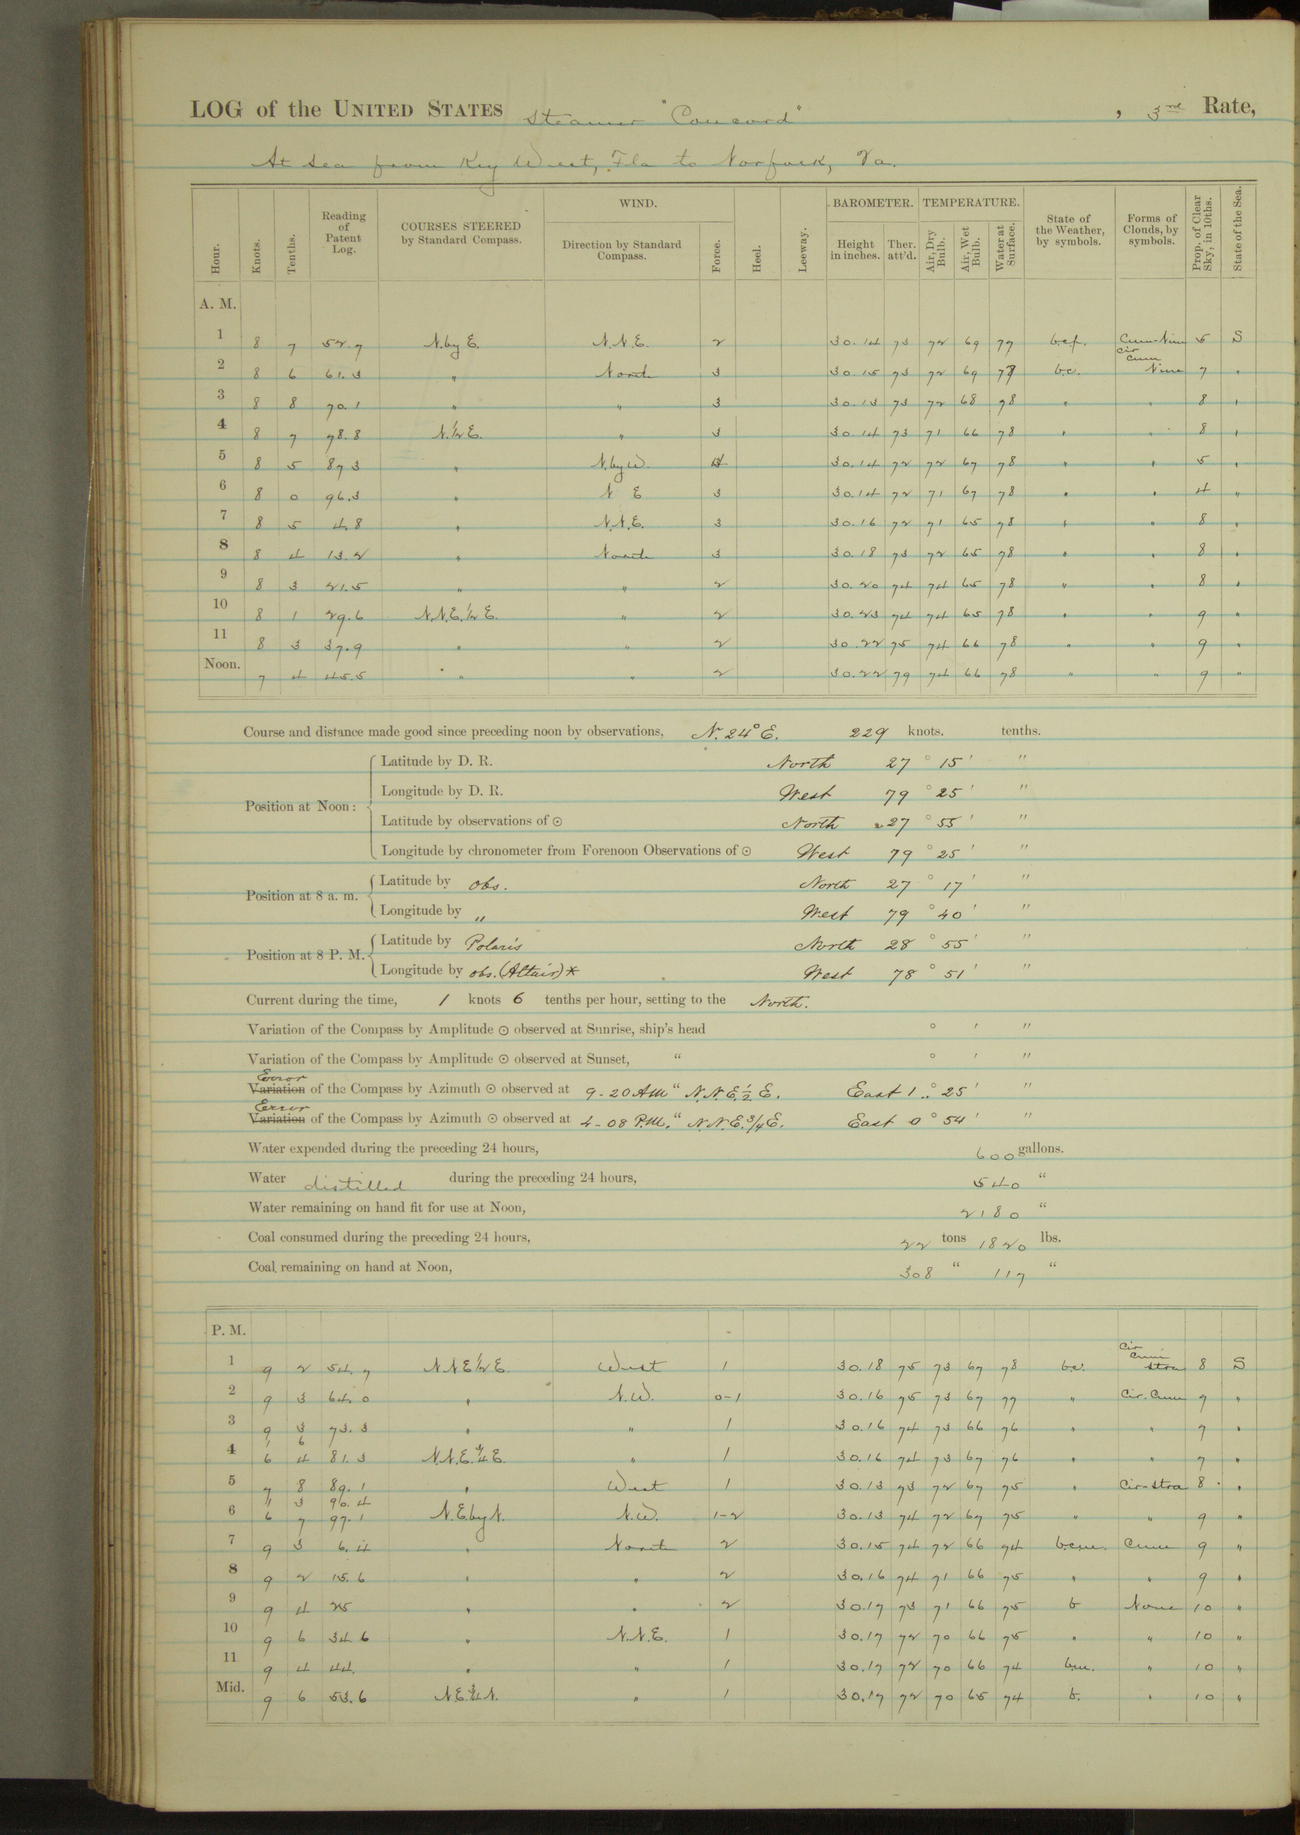 LOG of the UNITED STATES Steamer "Concord", 3rd Rate,
At Sea from Key West, Fla to Norfolk, Va.
Hour. Knots. Tenths. Reading of Patent Log. COURSES STEERED by Standard Compass. WIND. Direction by Standard Compass. Force. Heel. Leeway. BAROMETER. Height in inches. Ther. att'd. TEMPERATURE. Air, Dry Bulb. Air, Wet Bulb. Water at Surface. State of the Weather, by symbols. Forms of Clouds, by symbols. Prop. of Clear Sky, in 10ths. State of the Sea.
A. M.
1 8 7 52.7 N. by E. N.N.E. 2 30.14 73 72 69 77 b.c.p. Cum-Nim 5 S
2 8 6 61.3 " North 3 30.15 73 72 69 77 b.c. Cir Cum Nim 7 "
3 8 8 70.1 " " 3 30.13 73 72 68 78 " " 8 "
4 8 7 78.8 N.1/2E. " 3 30.14 73 71 66 78 " " 8 "
5 8 5 87 3 " N. by W. 30.14 72 72 67 78 " " 5 "
6 8 0 96.3 " N E 3 30.14 72 71 67 78 " " 4 "
7 8 5 4.8 " N.N.E. 3 30.16 72 71 65 78 " " 8 "
8 8 4 13.2 " North 3 30.18 73 72 65 78 " " 8 "
9 8 3 21.5 " " 2 30.20 74 74 65 78 " " 8 "
10 8 1 29.6 N.N.E.1/2E. " 2 30.23 74 74 65 78 " " 9 "
11 8 3 37.9 " " 2 30.22 75 74 66 78 " " 9 "
Noon. 7 4 45.5 " " 2 30.22 79 74 66 78 " " 9 "
Course and distance made good since preceding noon by observations, N. 24° E. 229 knots. tenths.
Position at Noon:
Latitude by D. R. North 27 ° 15 ' "
Longitude by D. R. West 79 ° 25 ' "
Latitude by observations of ⊙ North 27 ° 55 ' "
Longitude by chronometer from Forenoon Observations of ⊙ West 79 ° 25 ' "
Position at 8 a. m.
Latitude by obs. North 27 ° 17 ' "
Longitude by " West 79 ° 40 ' "
Position at 8 P. M.
Latitude by Polaris North 28 ° 55 ' "
Longitude by obs. (Altair)* West 78 ° 51 ' "
Current during the time, 1 knots 6 tenths per hour, setting to the North.
Variation of the Compass by Amplitude ⊙ observed at Sunrise, ship's head ° ' "
Variation of the Compass by Amplitude ⊙ observed at Sunset, " ° ' "
Error
Variation of the Compass by Azimuth ⊙ observed at 9-20 AM " N.N.E.1/2 E. East 1 ° 25 ' "
Error
Variation of the Compass by Azimuth ⊙ observed at 4-08 P.M. " N.N.E.3/4E. East 0 ° 54 ' "
Water expended during the preceding 24 hours, 600 gallons.
Water distilled during the preceding 24 hours, 540 "
Water remaining on hand fit for use at Noon, 2180 "
Coal consumed during the preceding 24 hours, 22 tons 1820 lbs.
Coal remaining on hand at Noon, 308 " 117 "
P. M.
1 9 2 54.7 N N E 1/2 E. West 1 30.18 75 73 67 78 b.c. Cir Cum Stra 8 S
2 9 3 64.0 " N.W. 0-1 30.16 75 73 67 77 " Cir. Cum 7 "
3 9 3 73.3 " " 1 30.16 74 73 66 76 " " 7 "
1 6
4 6 4 81.3 N.N.E.3/4E. " 1 30.16 74 73 67 76 " " 7 "
5 7 8 89.1 " West 1 30.13 73 72 67 75 " Cir-Stra 8 "
1 3 90.4
6 6 7 97.1 N.E. by N. N.W. 1-2 30.13 74 72 67 75 " " 9 "
7 9 3 6.4 " North 2 30.15 74 72 66 74 b.c.m. Cum 9 "
8 9 2 15.6 " " 2 30.16 74 71 66 75 " " 9 "
9 9 4 25 " " 2 30.17 73 71 66 75 b None 10 "
10 9 6 34.6 " N.N.E. 1 30.17 72 70 66 75 " " 10 "
11 9 4 44. " " 1 30.17 72 70 66 74 b.m. " 10 "
Mid. 9 6 53.6 N.E.3/4N. " 1 30.17 72 70 65 74 b. " 10 "